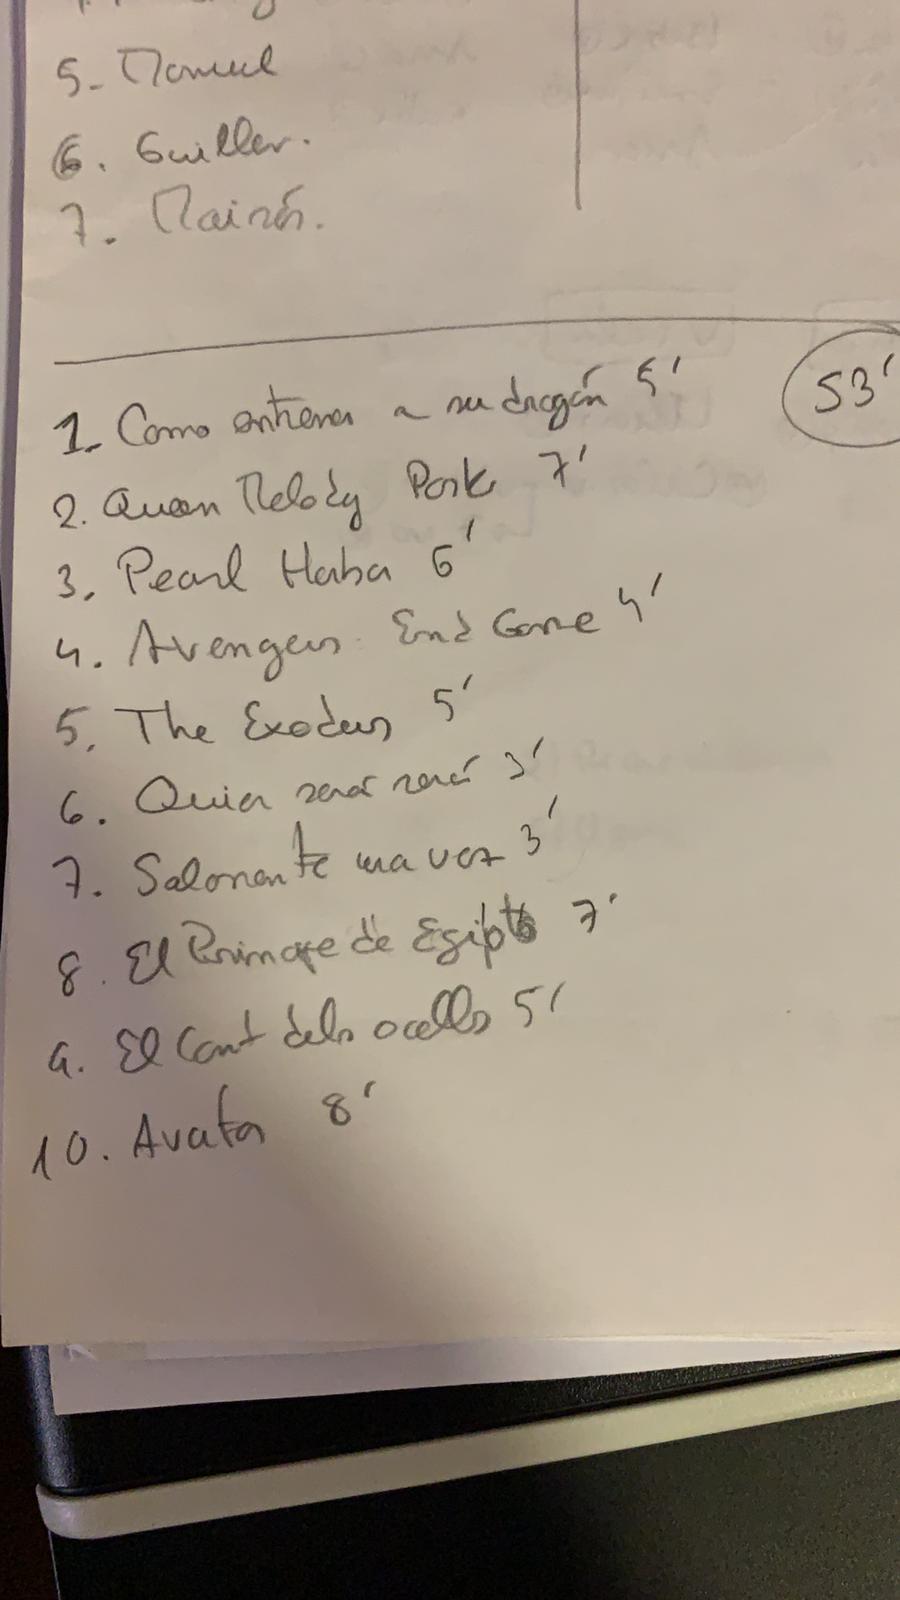 5- Manuel
6. Guiller.
7. Mairós.
1. Como entrenar a su dragón 5'
53'
2. Queen Melody Park 7'
3. Pearl Haba 6'
4. Avengers End Game 4'
5. The Exodus 5'
6. Quien será será 3'
7. Solamente una vez 3'
8. El Principe de Egipto 7'
9. El Cant dels ocells 5'
10. Avatar 8'